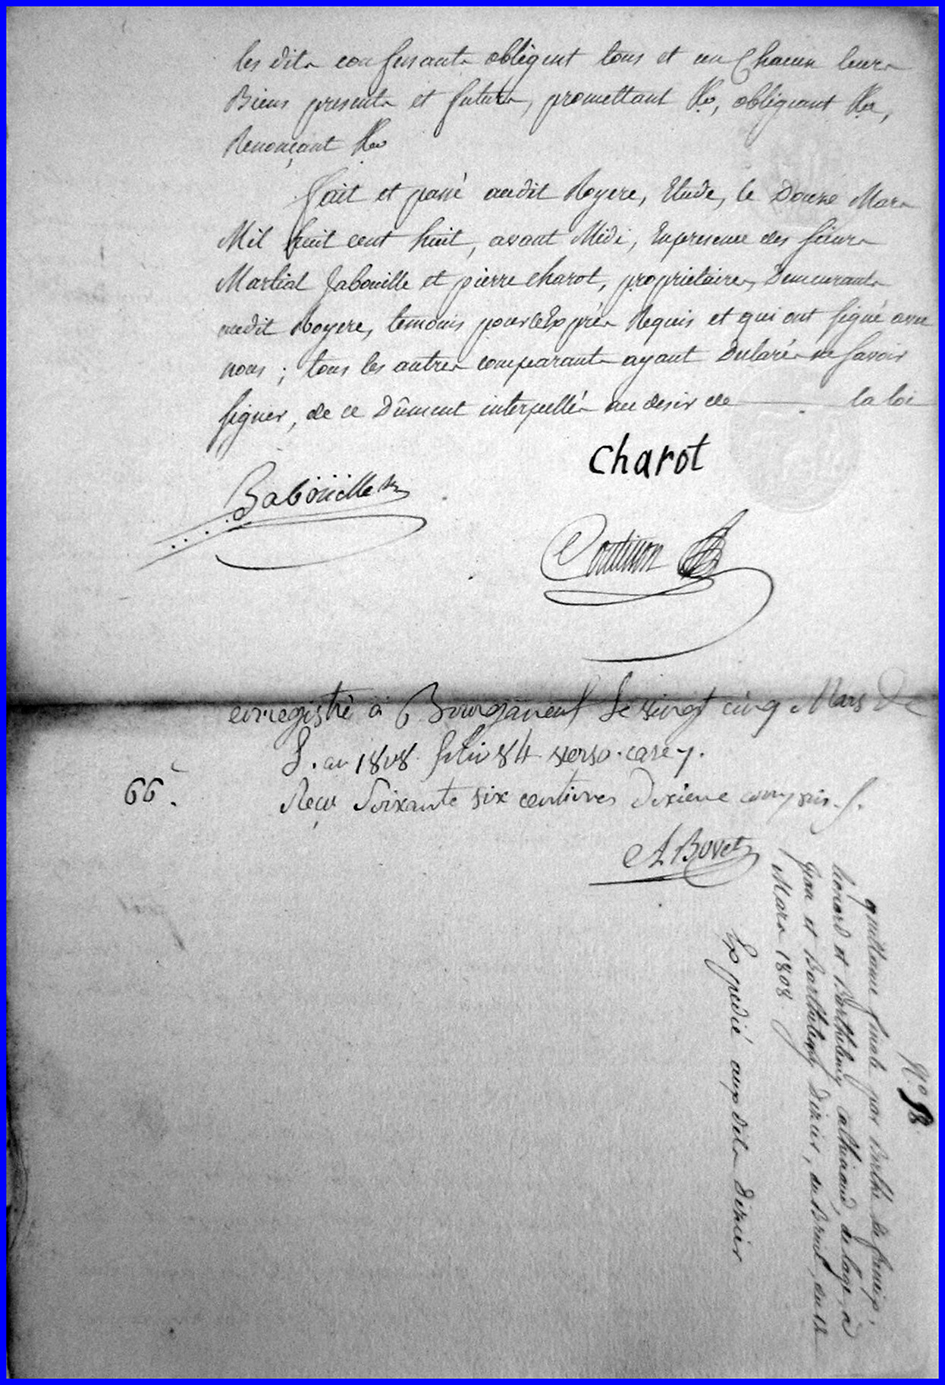 les dits confessants obligent tous et un Chacun leurs
Biens presents et futurs, promettant &a, obligeant &a,
Renonçant &a
fait et passé audit Royere, Etude, le Douze Mars
Mil huit cent huit, avant Midi, En presence des sieurs
Martial Jabouille et pierre charot, proprietaires, Demeurants
audit Royere, temoins pour ce Exprès Requis et qui ont signé avec
nous ; tous les autres comparants ayant Declaré ne savoir
signer, de ce Dûment interpellés au desir de la loi
charot
Jabouille
enregistré à Bourganeuf le vingt cinq Mars
an 1808 folio 84 verso. case 7.
66.
Reçu Soixante six centimes dixieme compris.
A Bovet
N.º 58
quittance finale par
léonard et Barthelemy de lage, à
jean et Barthelemy Dizier, du du 12
Mars 1808
Expedié auxdits dizier